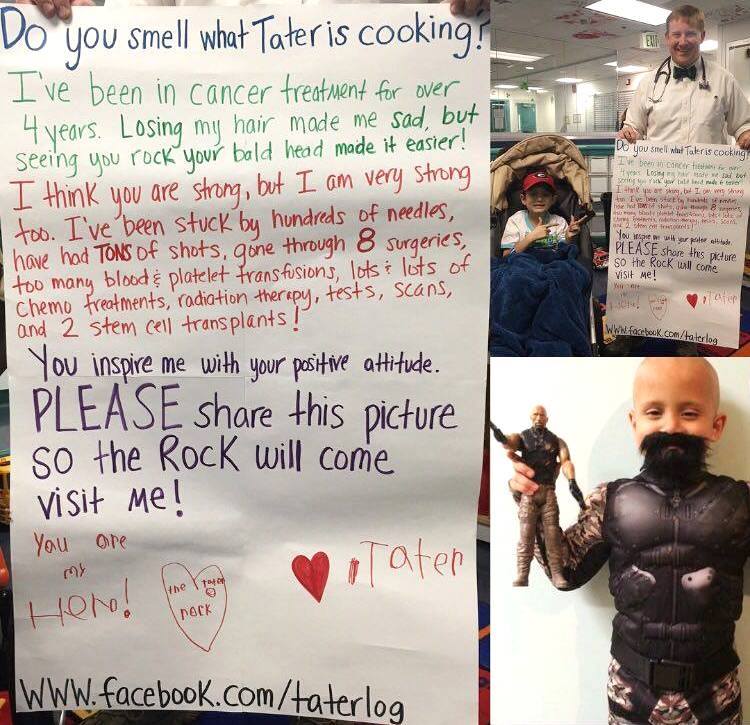 Do you smell what Tater is cooking?
I've been in cancer treatment for over
4 years. Losing my hair made me sad, but
seeing you rock your bald head made it easier!
I think you are strong, but I am very strong
too. I've been stuck by hundreds of needles,
have had TONS of shots, gone through 8 surgeries,
too many blood & platelet transfusions, lots & lots of
chemo treatments, radiation therapy, tests, scans,
and 2 stem cell transplants!
You inspire me with your positive attitude.
PLEASE share this picture
so the Rock will come
visit me!
You are
my
Hero!
the
tater
rock
Tater
WWW.facebook.com/taterlog
EXIT
Do you smell what Tater is cooking?
I've been in cancer treatment for over
4 years. Losing my hair made me sad, but
seeing you rock your bald head made it easier!
I think you are strong, but I am very strong
too. I've been stuck by hundreds of needles,
have had TONS of shots, gone through 8 surgeries,
too many blood & platelet transfusions, lots & lots of
chemo treatments, radiation therapy, tests, scans,
and 2 stem cell transplants!
You inspire me with your positive attitude.
PLEASE share this picture
so the Rock will come
visit me!
You are
my
Hero!
Tater
WWW.facebook.com/taterlog